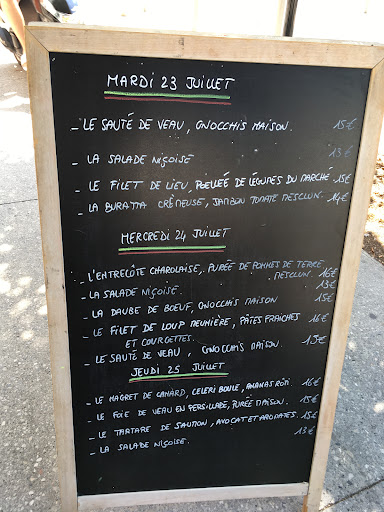 MARDI 23 JUILLET
- LE SAUTÉ DE VEAU, GNOCCHIS MAISON. 15€
- LA SALADE NIÇOISE 13€
- LE FILET DE LIEU, POELLÉE DE LÉGUMES DU MARCHÉ. 15€
- LA BURATTA CRÉMEUSE, JAMBON TOMATE MESCLUN. 14€
MERCREDI 24 JUILLET
- L'ENTRECÔTE CHAROLAISE, PURÉE DE POMMES DE TERRE
MESCLUN. 16€
- LA SALADE NIÇOISE. 13€
- LA DAUBE DE BOEUF, GNOCCHIS MAISON 15€
- LE FILET DE LOUP MEUNIÈRE, PÂTES FRAICHES 16€
ET COURGETTES.
- LE SAUTÉ DE VEAU, GNOCCHIS MAISON. 15€
JEUDI 25 JUILLET
- LE MAGRET DE CANARD, CELERI BOULE, ANANAS RÔTI. 16€
- LE FOIE DE VEAU EN PERSILLADE, PURÉE MAISON. 15€
- LE TARTARE DE SAUMON, AVOCAT ET AROMATES. 15€
- LA SALADE NIÇOISE. 13€